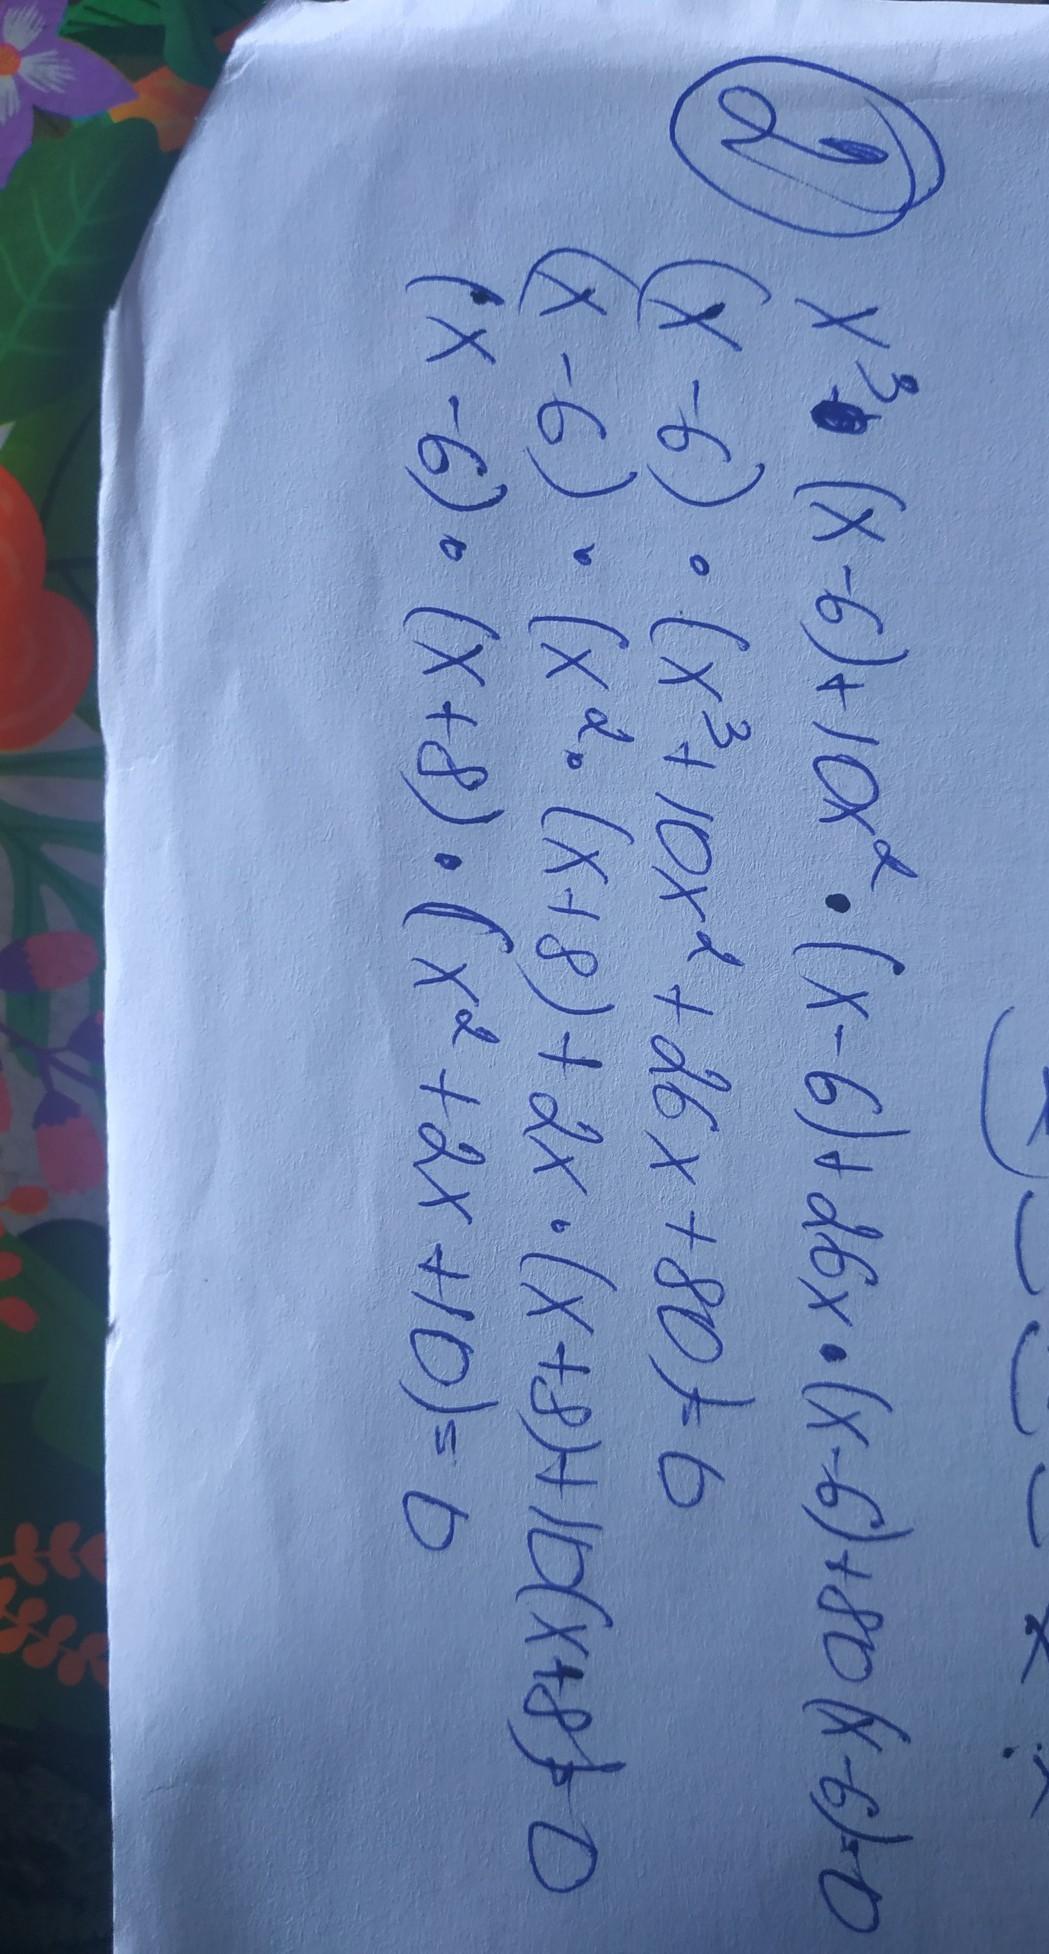 2
x³ · (x-6)+10x² · (x-6)+26x · (x-6)+80(x-6)=0
(x-6) · (x³+10x²+26x+80)=0
(x-6) · (x² · (x+8)+2x · (x+8)+10(x+8))=0
(x-6) · (x+8) · (x²+2x+10)=0